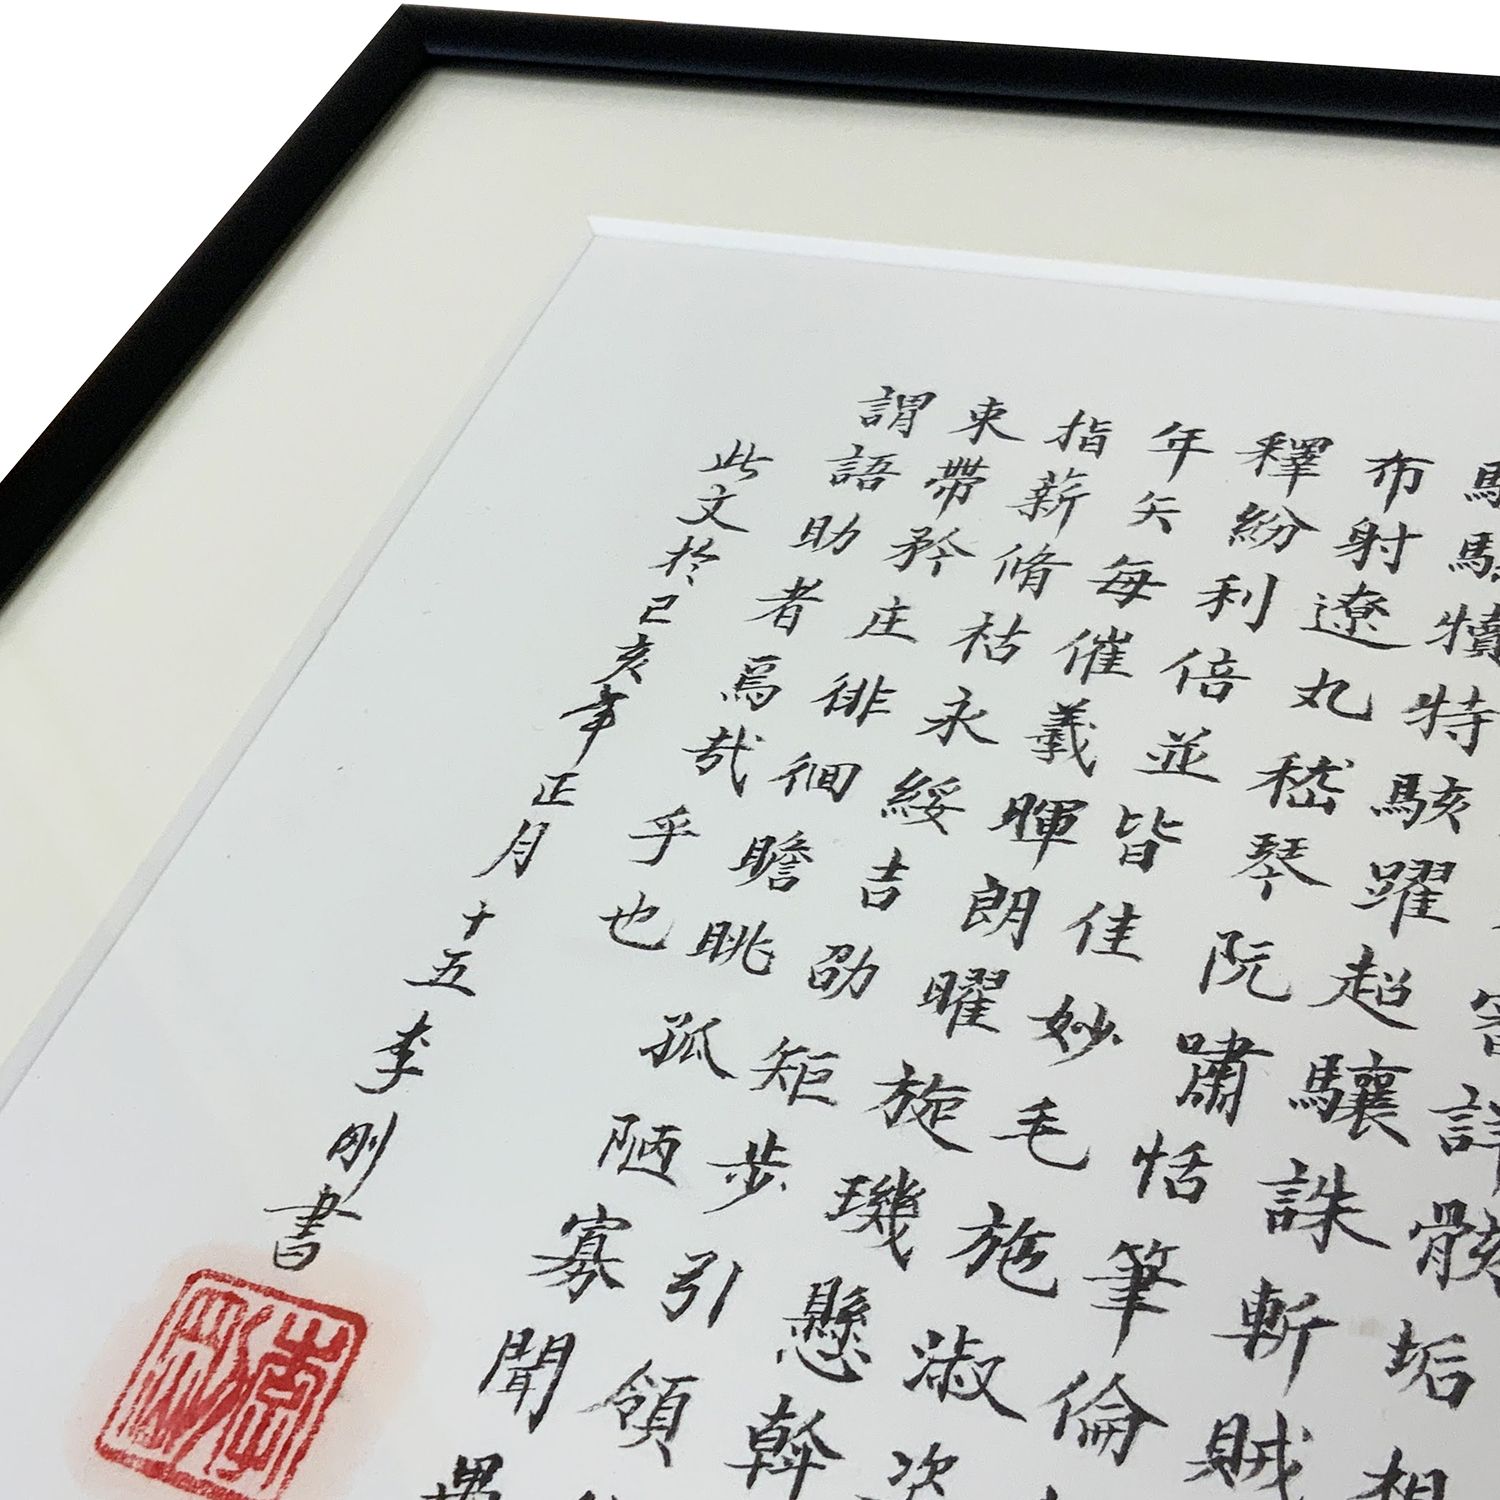 詳骸垢想
驢騾犢特駭躍超驤誅斬賊
布射遼丸嵇琴阮嘯恬筆倫
釋紛利倍並皆佳妙毛施淑
年矢每催羲暉朗曜旋璣懸斡
指薪脩祜永綏吉劭矩步引領
束帶矜庄徘徊瞻眺孤陋寡聞愚
謂語助者焉哉乎也
此文於己亥年正月十五李剛書